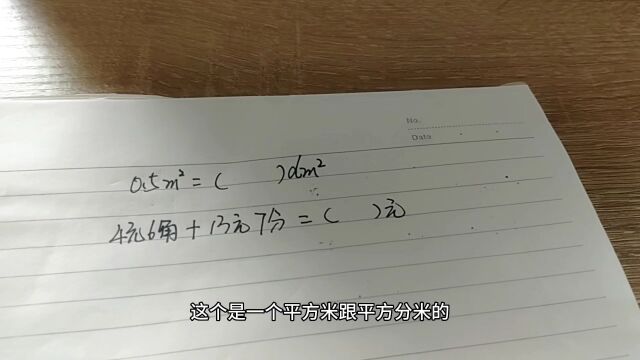 No.
Data
0.5m² = (　　)dm²
4元6角 + 13元7分 = (　　)元
这个是一个平方米跟平方分米的